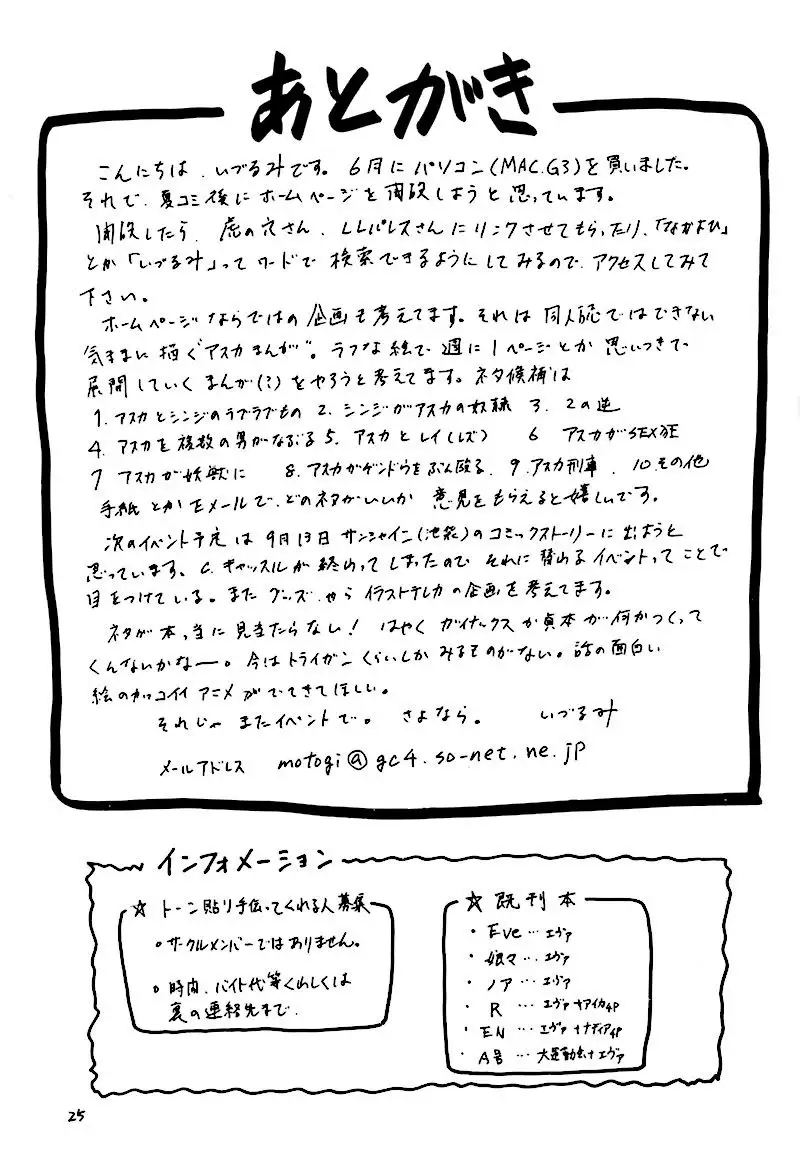 あとがき
こんにちは、いづるみです。6月にパソコン(MAC.G3)を買いました。
それで、夏コミ後にホームページを開設しようと思っています。
開設したら、虎の穴さん、LLパレスさんにリンクさせてもらったり、「なかよひ」
とか「いづるみ」ってワードで検索できるようにしてみるので、アクセスしてみて
下さい。
ホームページならではの企画も考えてます。それは同人誌ではできない
気ままに描く“アスカまんが”。ラフな絵で週に1ページとか思いつきで
展開していくまんが(?)をやろうと考えてます。ネタ候補は
1. アスカとシンジのラブラブもの 2. シンジがアスカの奴隷 3. 2の逆
4. アスカを複数の男がなぶる 5. アスカとレイ(レズ) 6 アスカがSEX狂
7 アスカが妖獣に 8. アスカがゲンドウをぶん殴る. 9. アスカ刑事. 10. その他
手紙とかEメールで、どのネタがいいか意見をもらえると嬉しいです。
次のイベント予定は9月13日サンシャイン(池袋)のコミックストーリーに出ようと
思っています。C.キャッスルが終わってしまったので それに替わるイベントってことで
目をつけている。またグッズやらイラストテレカの企画を考えてます。
ネタが本当に見当たらない! はやくガイナックスか貞本が何かつくって
くんないかなー。今はトライガンくらいしかみるものがない。話の面白い
絵のカッコイイアニメがでてきてほしい。
それじゃまたイベントで。さよなら。 いづるみ
メールアドレス motogi@gc4.so-net.ne.jp
インフォメーション
☆ トーン貼り手伝ってくれる人募集
○サークルメンバーではありません。
○時間、バイト代等くわしくは
裏の連絡先まで.
☆ 既刊本
・Eve…エヴァ
・娘々…エヴァ
・ノア…エヴァ
・R …エヴァ+アイカ4P
・EN …エヴァ+ナディア4P
・A号 …大運動会+エヴァ
25